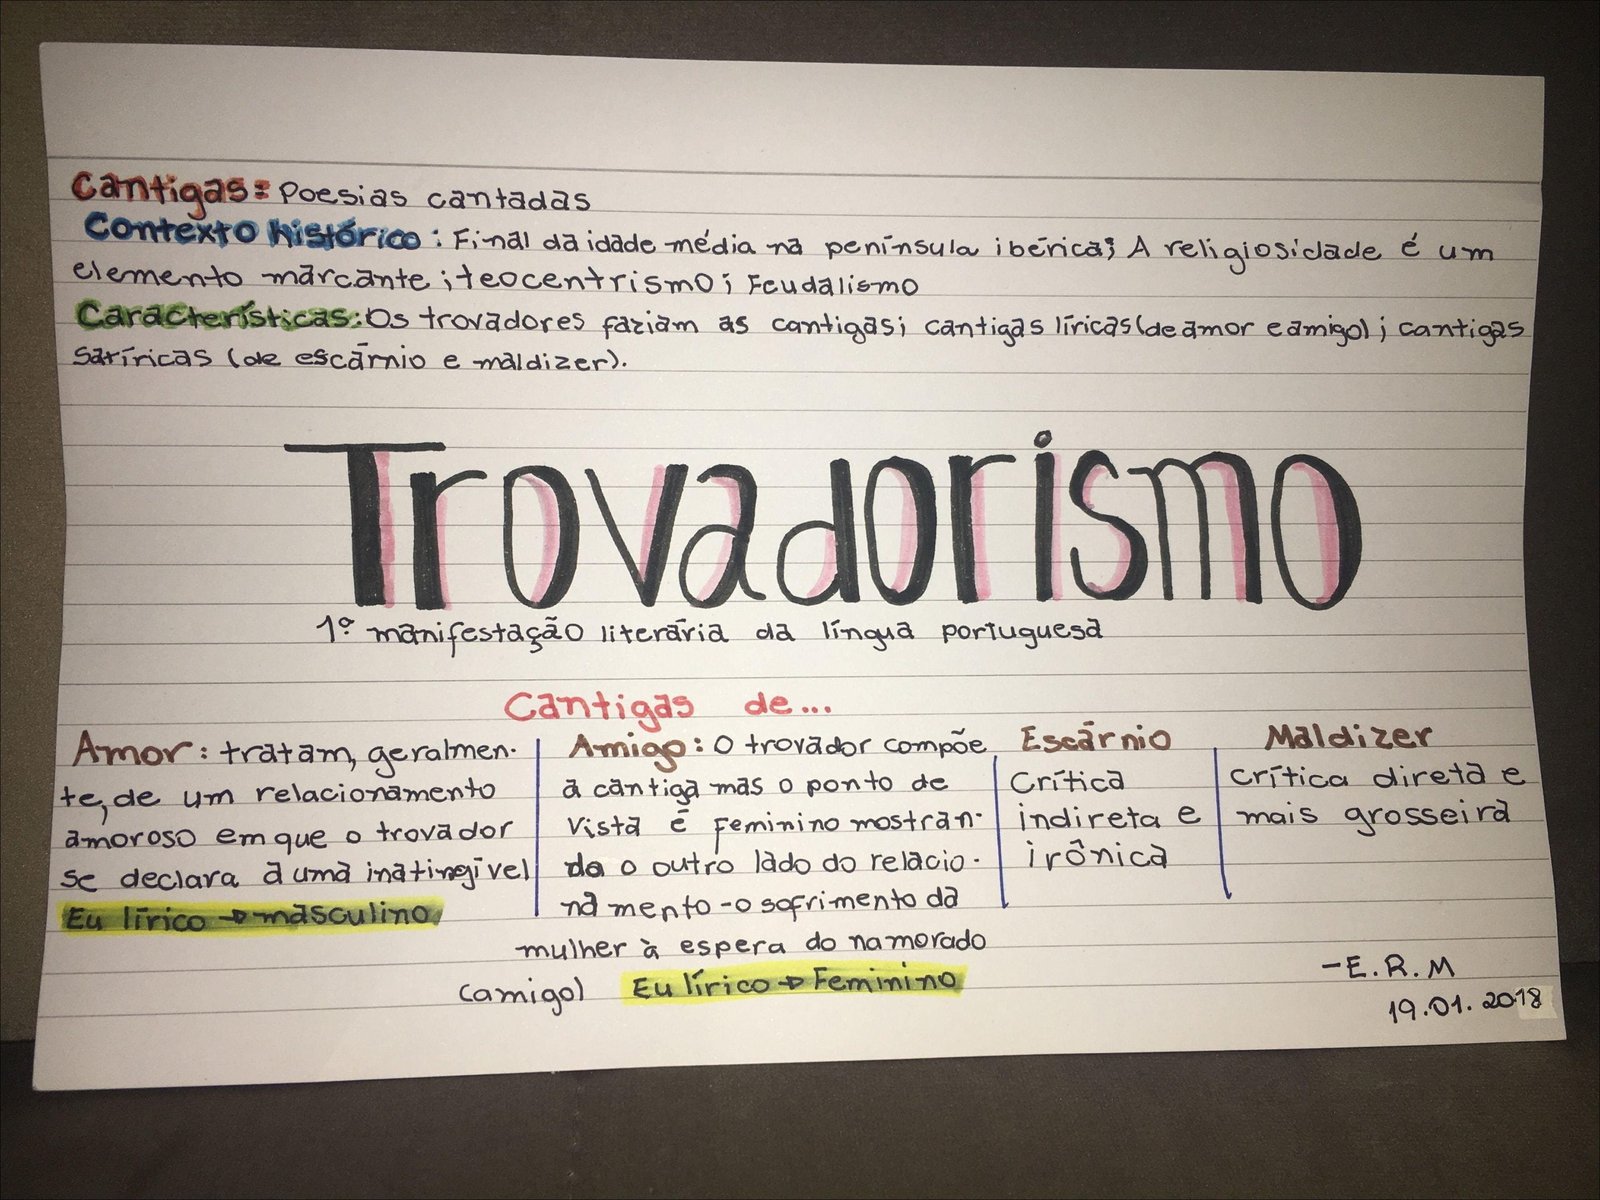 Cantigas: Poesias cantadas
Contexto histórico: Final da idade média na península ibérica; A religiosidade é um
elemento marcante; teocentrismo; Feudalismo
Características: Os trovadores faziam as cantigas; cantigas líricas (de amor e amigo); cantigas
satíricas (de escárnio e maldizer).
Trovadorismo
1º manifestação literária da língua portuguesa
Cantigas de...
Amor: tratam, geralmen-
te, de um relacionamento
amoroso em que o trovador
se declara à uma inatingível
Eu lírico → masculino
Amigo: O trovador compõe
a cantiga mas o ponto de
vista é feminino mostran-
do o outro lado do relacio-
namento - o sofrimento da
mulher à espera do namorado
(amigo) Eu lírico → Feminino
Escárnio
Crítica
indireta e
irônica
Maldizer
crítica direta e
mais grosseira
-E.R.M
19.01.2018